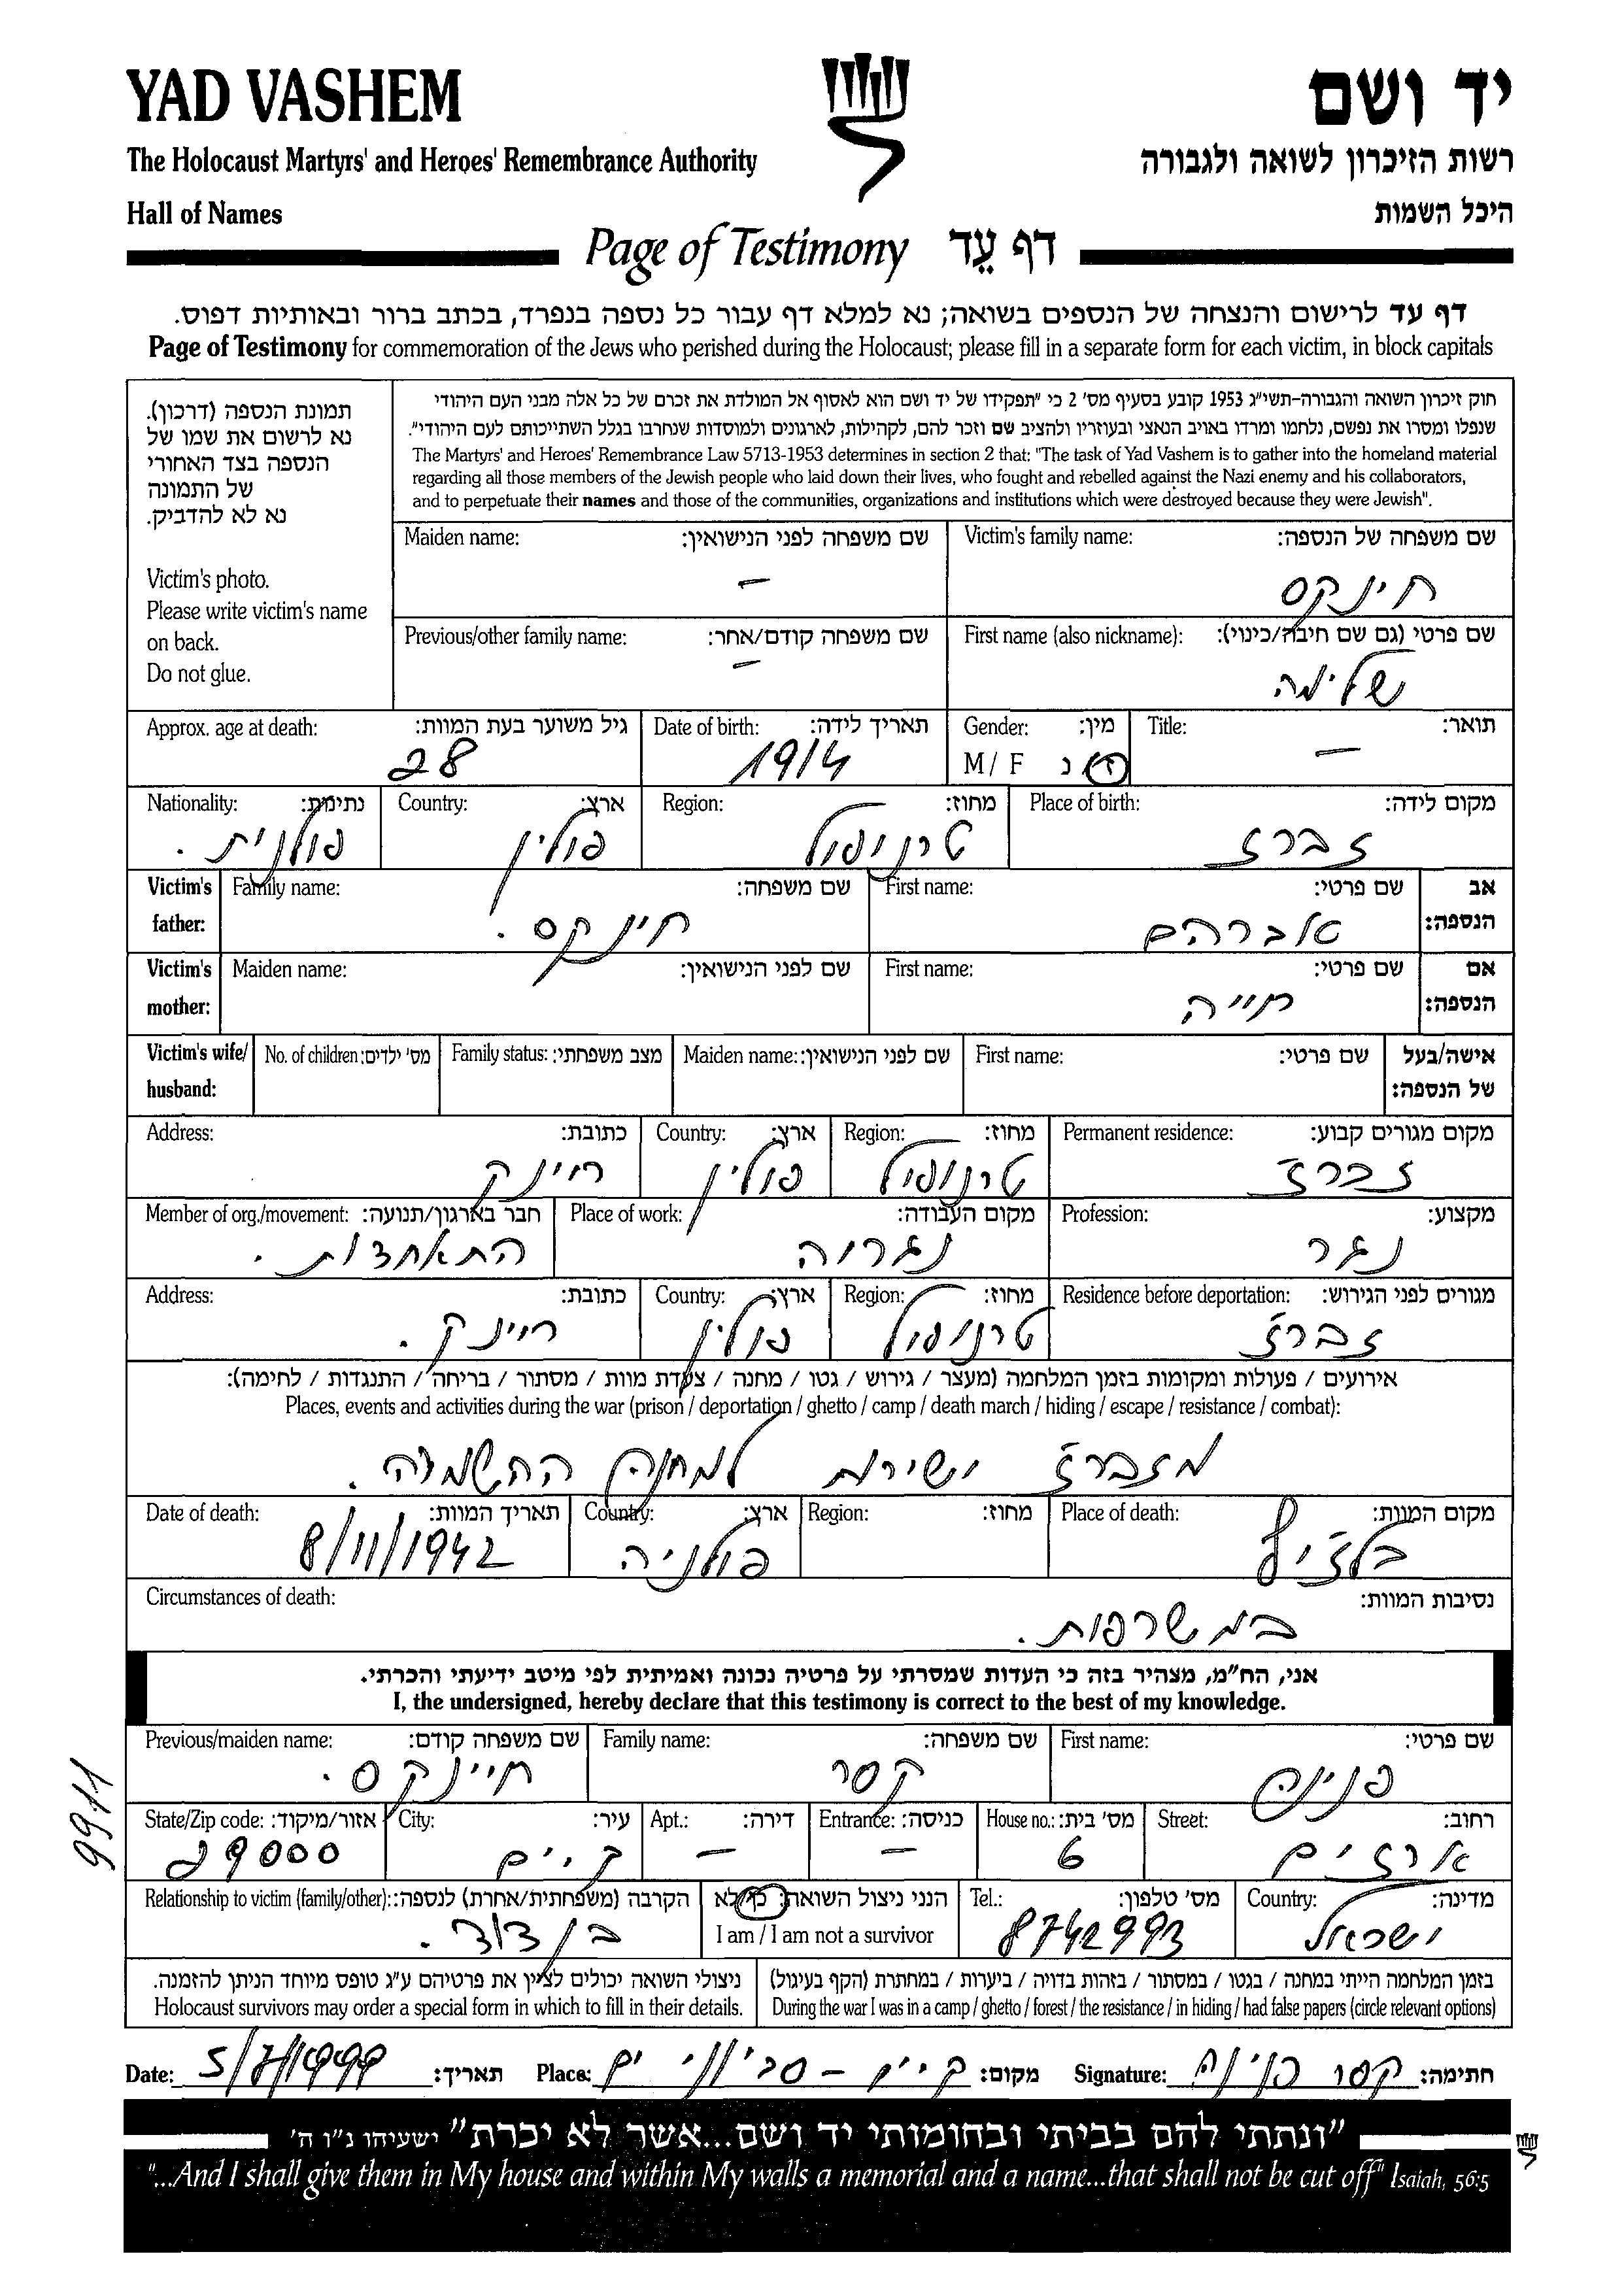 YAD VASHEM
יד ושם
The Holocaust Martyrs' and Heroes' Remembrance Authority
רשות הזיכרון לשואה ולגבורה
Hall of Names
היכל השמות
Page of Testimony דף עֵד
דף עד לרישום והנצחה של הנספים בשואה; נא למלא דף עבור כל נספה בנפרד, בכתב ברור ובאותיות דפוס.
Page of Testimony for commemoration of the Jews who perished during the Holocaust; please fill in a separate form for each victim, in block capitals
תמונת הנספה (דרכון).
נא לרשום את שמו של
הנספה בצד האחורי
של התמונה
נא לא להדביק.
Victim's photo.
Please write victim's name
on back.
Do not glue.
חוק זיכרון השואה והגבורה-תשי"ג 1953 קובע בסעיף מס' 2 כי "תפקידו של יד ושם הוא לאסוף אל המולדת את זכרם של כל אלה מבני העם היהודי
שנפלו ומסרו את נפשם, נלחמו ומרדו באויב הנאצי ובעוזריו ולהציב שם וזכר להם, לקהילות, לארגונים ולמוסדות שנחרבו בגלל השתייכותם לעם היהודי".
The Martyrs' and Heroes' Remembrance Law 5713-1953 determines in section 2 that: "The task of Yad Vashem is to gather into the homeland material
regarding all those members of the Jewish people who laid down their lives, who fought and rebelled against the Nazi enemy and his collaborators,
and to perpetuate their names and those of the communities, organizations and institutions which were destroyed because they were Jewish".
Victim's family name: שם משפחה של הנספה:
חינקס
Maiden name: שם משפחה לפני הנישואין:
–
First name (also nickname): שם פרטי (גם שם חיבה/כינוי):
שלימה
Previous/other family name: שם משפחה קודם/אחר:
–
Title: תואר:
–
Gender: מין:
M / F ז / נ
Date of birth: תאריך לידה:
1914
Approx. age at death: גיל משוער בעת המוות:
28
Place of birth: מקום לידה:
זברז
Region: מחוז:
טרנופול
Country: ארץ:
פולין
Nationality: נתינות:
פולנית .
Victim's father: אב הנספה:
First name: שם פרטי:
אברהם
Family name: שם משפחה:
חינקס .
Victim's mother: אם הנספה:
First name: שם פרטי:
חייה
Maiden name: שם לפני הנישואין:
Victim's wife/ husband: אישה/בעל של הנספה:
First name: שם פרטי:
Maiden name: שם לפני הנישואין:
Family status: מצב משפחתי:
No. of children: מס' ילדים:
Permanent residence: מקום מגורים קבוע:
זברז
Region: מחוז:
טרנופול
Country: ארץ:
פולין
Address: כתובת:
רינק
Profession: מקצוע:
נגר
Place of work: מקום העבודה:
נגרוה
Member of org./movement: חבר בארגון/תנועה:
התאחדות .
Residence before deportation: מגורים לפני הגירוש:
זברז
Region: מחוז:
טרנופול
Country: ארץ:
פולין
Address: כתובת:
רינק .
אירועים / פעולות ומקומות בזמן המלחמה (מעצר / גירוש / גטו / מחנה / צעדת מוות / מסתור / בריחה / התנגדות / לחימה):
Places, events and activities during the war (prison / deportation / ghetto / camp / death march / hiding / escape / resistance / combat):
מזברז ישירות למחנה ההשמדה .
Place of death: מקום המוות:
בלזיץ
Region: מחוז:
Country: ארץ:
פולניה
Date of death: תאריך המוות:
8/11/1942
Circumstances of death: נסיבות המוות:
במשרפות .
אני, הח"מ, מצהיר בזה כי העדות שמסרתי על פרטיה נכונה ואמיתית לפי מיטב ידיעתי והכרתי.
I, the undersigned, hereby declare that this testimony is correct to the best of my knowledge.
First name: שם פרטי:
פנינה
Family name: שם משפחה:
קסר
Previous/maiden name: שם משפחה קודם:
חיינקס .
9911
Street: רחוב:
ארזים
House no.: מס' בית:
6
Entrance: כניסה:
–
Apt.: דירה:
–
City: עיר:
ק. ים
State/Zip code: אזור/מיקוד:
29000
Country: מדינה:
ישראל
Tel.: מס' טלפון:
8742993
הנני ניצול השואה: כן/לא
I am / I am not a survivor
Relationship to victim (family/other): הקרבה (משפחתית/אחרת) לנספה:
בן דוד .
בזמן המלחמה הייתי במחנה / בגטו / במסתור / בזהות בדויה / ביערות / במחתרת (הקף בעיגול)
During the war I was in a camp / ghetto / forest / the resistance / in hiding / had false papers (circle relevant options)
ניצולי השואה יכולים לציין את פרטיהם ע"ג טופס מיוחד הניתן להזמנה.
Holocaust survivors may order a special form in which to fill in their details.
Signature: קסר פנינה חתימה:
Place: ק. ים – סביוני ים מקום:
Date: 5/7/1999 תאריך:
"ונתתי להם בביתי ובחומותי יד ושם...אשר לא יכרת" ישעיהו נ"ו ה'
"...And I shall give them in My house and within My walls a memorial and a name...that shall not be cut off" Isaiah, 56:5